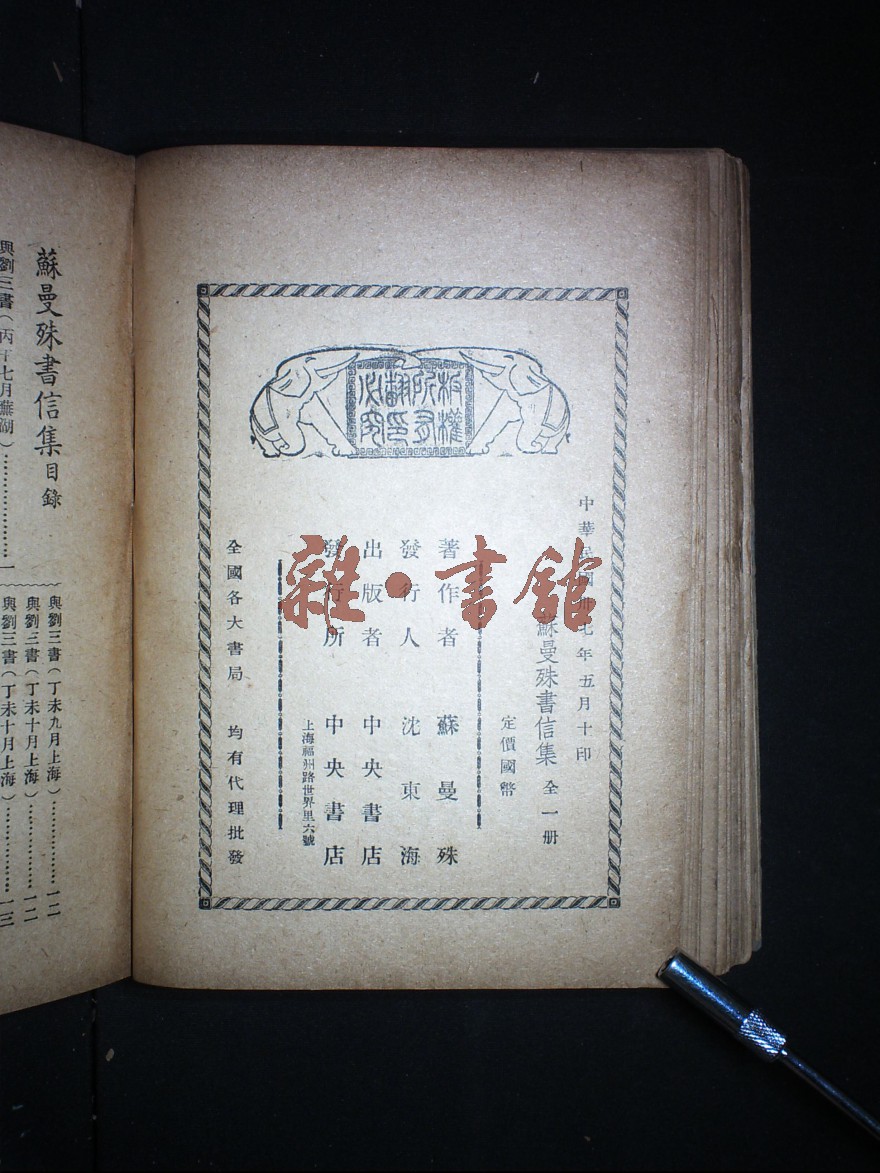 版權
所有
翻印
必究
中華民國卅七年五月十印
蘇曼殊書信集 全一册
定價國幣
著作者 蘇曼殊
發行人 沈東海
出版者 中央書店
發行所 中央書店
上海福州路世界里六號
全國各大書局 均有代理批發
雜·書館
與劉三書（丁未九月上海）……………一二
與劉三書（丁未十月上海）……………一二
與劉三書（丁未十月上海）……………一三
蘇曼殊書信集目錄
與劉三書（丙午七月蕪湖）……………一